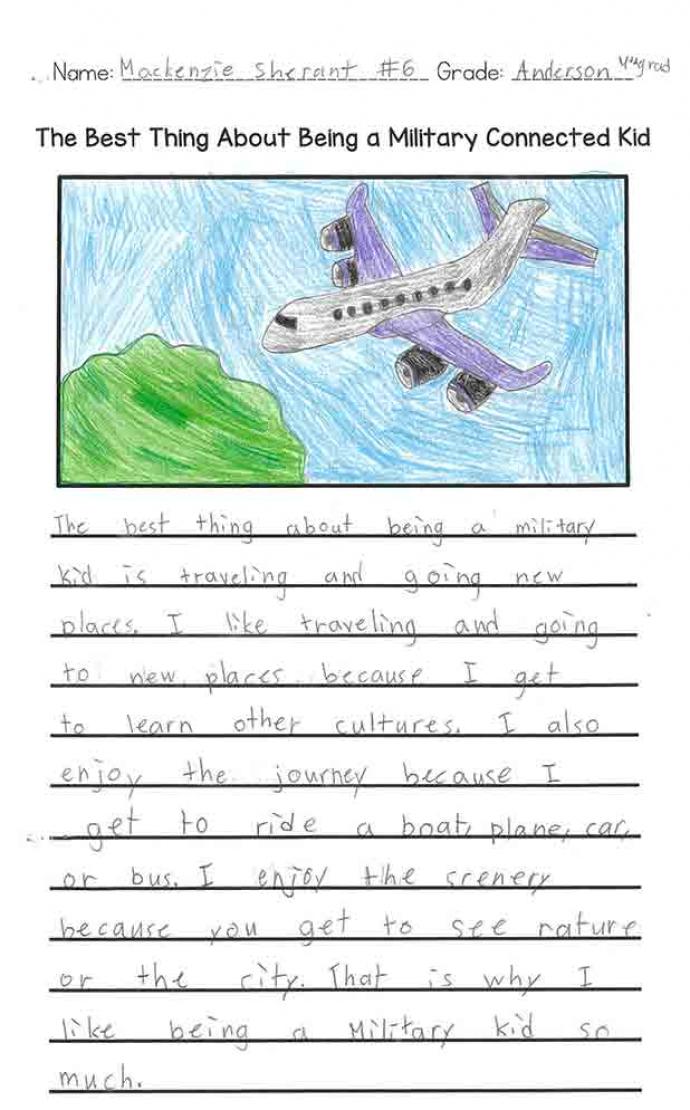 Name: Mackenzie Sherant #6 Grade: Anderson 4th grad
The Best Thing About Being a Military Connected Kid
The best thing about being a military
kid is traveling and going new
places. I like traveling and going
to new places because I get
to learn other cultures. I also
enjoy the journey because I
get to ride a boat, plane, car,
or bus. I enjoy the scenery
because you get to see nature
or the city. That is why I
like being a military kid so
much.